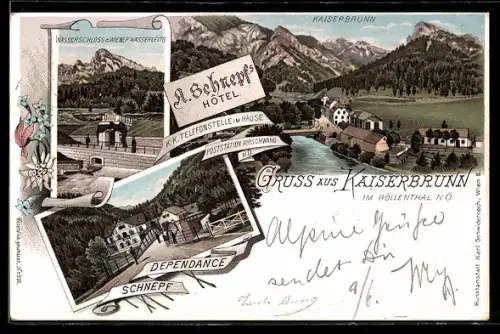 WASSERSCHLOSS D. WIENER WASSERLEITG
KAISERBRUNN
A. Schnepf's
HÔTEL
K.K. TELEFONSTELLE IM HAUSE
POSTSTATION HIRSCHWANG
N.Ö.
GRUSS AUS KAISERBRUNN
IM HÖLLENTHAL N.Ö.
DEPENDANCE
SCHNEPF
Alpine Grüße
sendet Dir
9/6.
Kunstanstalt Karl Schwidernoch, Wien II.